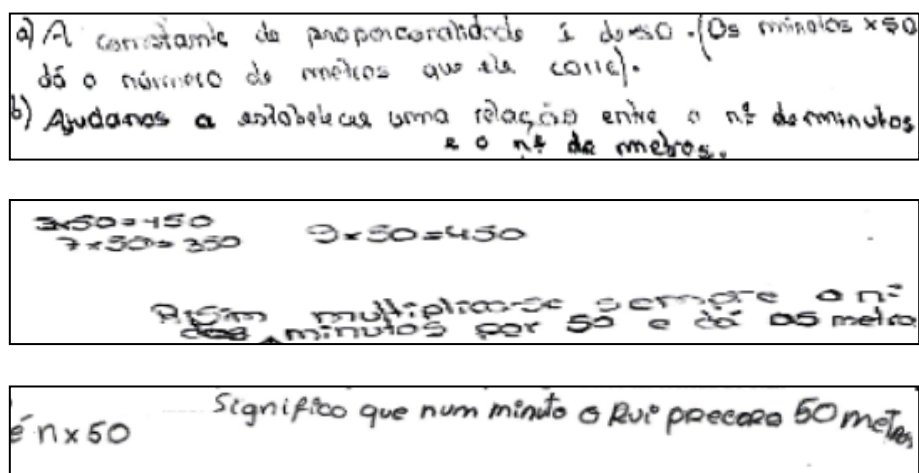 a) A constante de proporcionalidade é de 50. (Os minutos x 50
dá o número de metros que ele corre).
b) Ajudanos a estabelecer uma relação entre o nº de minutos
e o nº de metros.
3x50=150
7x50=350
9x50=450
Assim multiplica-se sempre o nº
dos minutos por 50 e dá os metro
é n x 50
Significa que num minuto o Rui precorre 50 metros